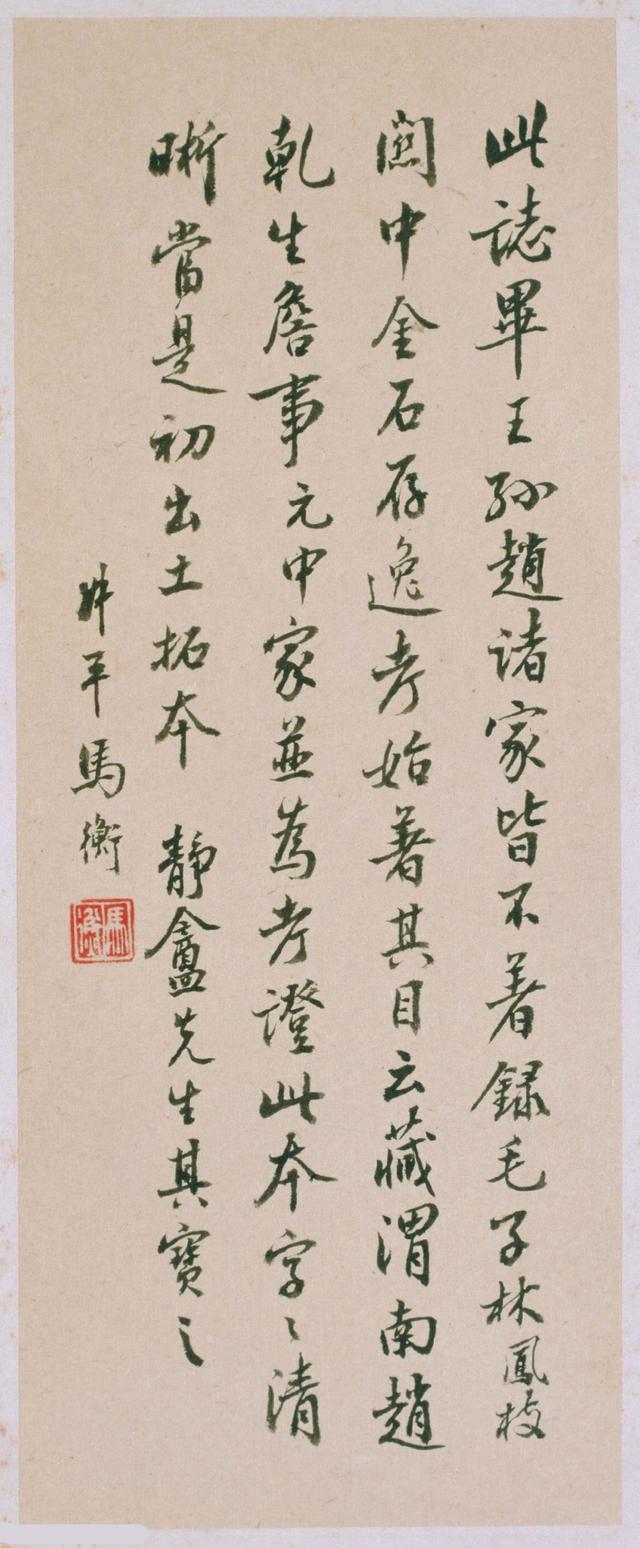 此誌畢王孫趙諸家皆不著錄毛子林鳳枝
關中金石存逸考始著其目云藏渭南趙
乾生詹事元中家並為考證此本字〻清
晰當是初出土拓本　靜盦先生其寶之
叔平馬衡
馬衡